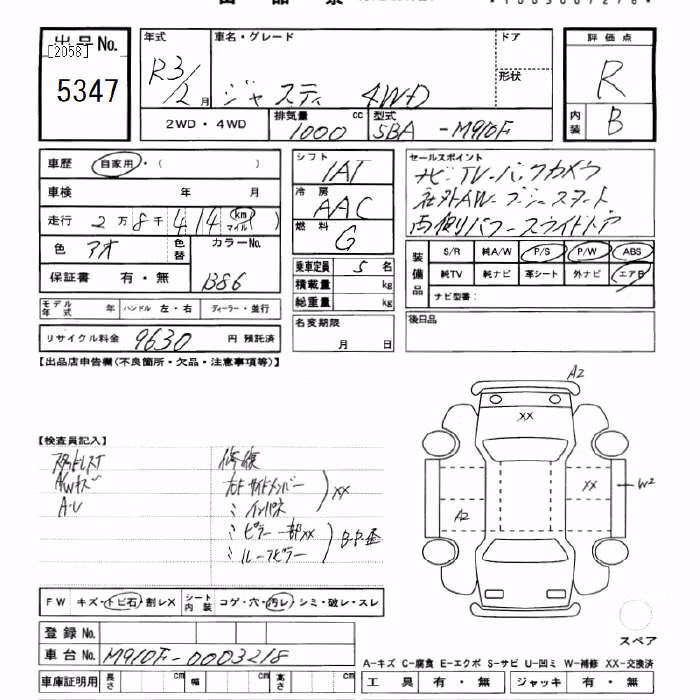 出品No.
[2058]
5347
年式
R3/2月
車名・グレード
ジャスティ 4WD
ドア
形状
評価点
R
内装
B
2WD・4WD
排気量 cc
1000
型式
5BA-M910F
車歴 自家用・( )
車検 年 月
走行 2万8千414 km マイル
色 アオ
色替
カラーNo.
B86
保証書 有・無
シフト
IAT
冷房
AAC
燃料
G
乗車定員 5名
積載量 kg
総重量 kg
セールスポイント
ナビ・TV・バックカメラ
社外AW・プッシュスタート
両側パワースライドドア
装備品
S/R 純A/W P/S P/W ABS
純TV 純ナビ 革シート 外ナビ エアB
ナビ型番:
モデル年式 年 ハンドル 左・右 ディーラー・並行
リサイクル料金 9630 円 預託済
名変期限
月 日
後日品
【出品店申告欄(不良箇所・欠品・注意事項等)】
【検査員記入】
AWキズ
A・U
修復
右F サイドメンバー
〃 インパネ
XX
〃 ピラー一部XX
〃 ルーフピラー
B・P歪
A2
XX
XX
W2
A2
スペア
FW キズ・トビ石・割レX
シート内装 コゲ・穴・汚レ・シミ・破レ・スレ
登録No.
車台No. M910F-0003218
車庫証明用 長さ cm 幅 cm 高さ cm
A-キズ C-腐食 E-エクボ S-サビ U-凹ミ W-補修 XX-交換済
工具 有・無 ジャッキ 有・無